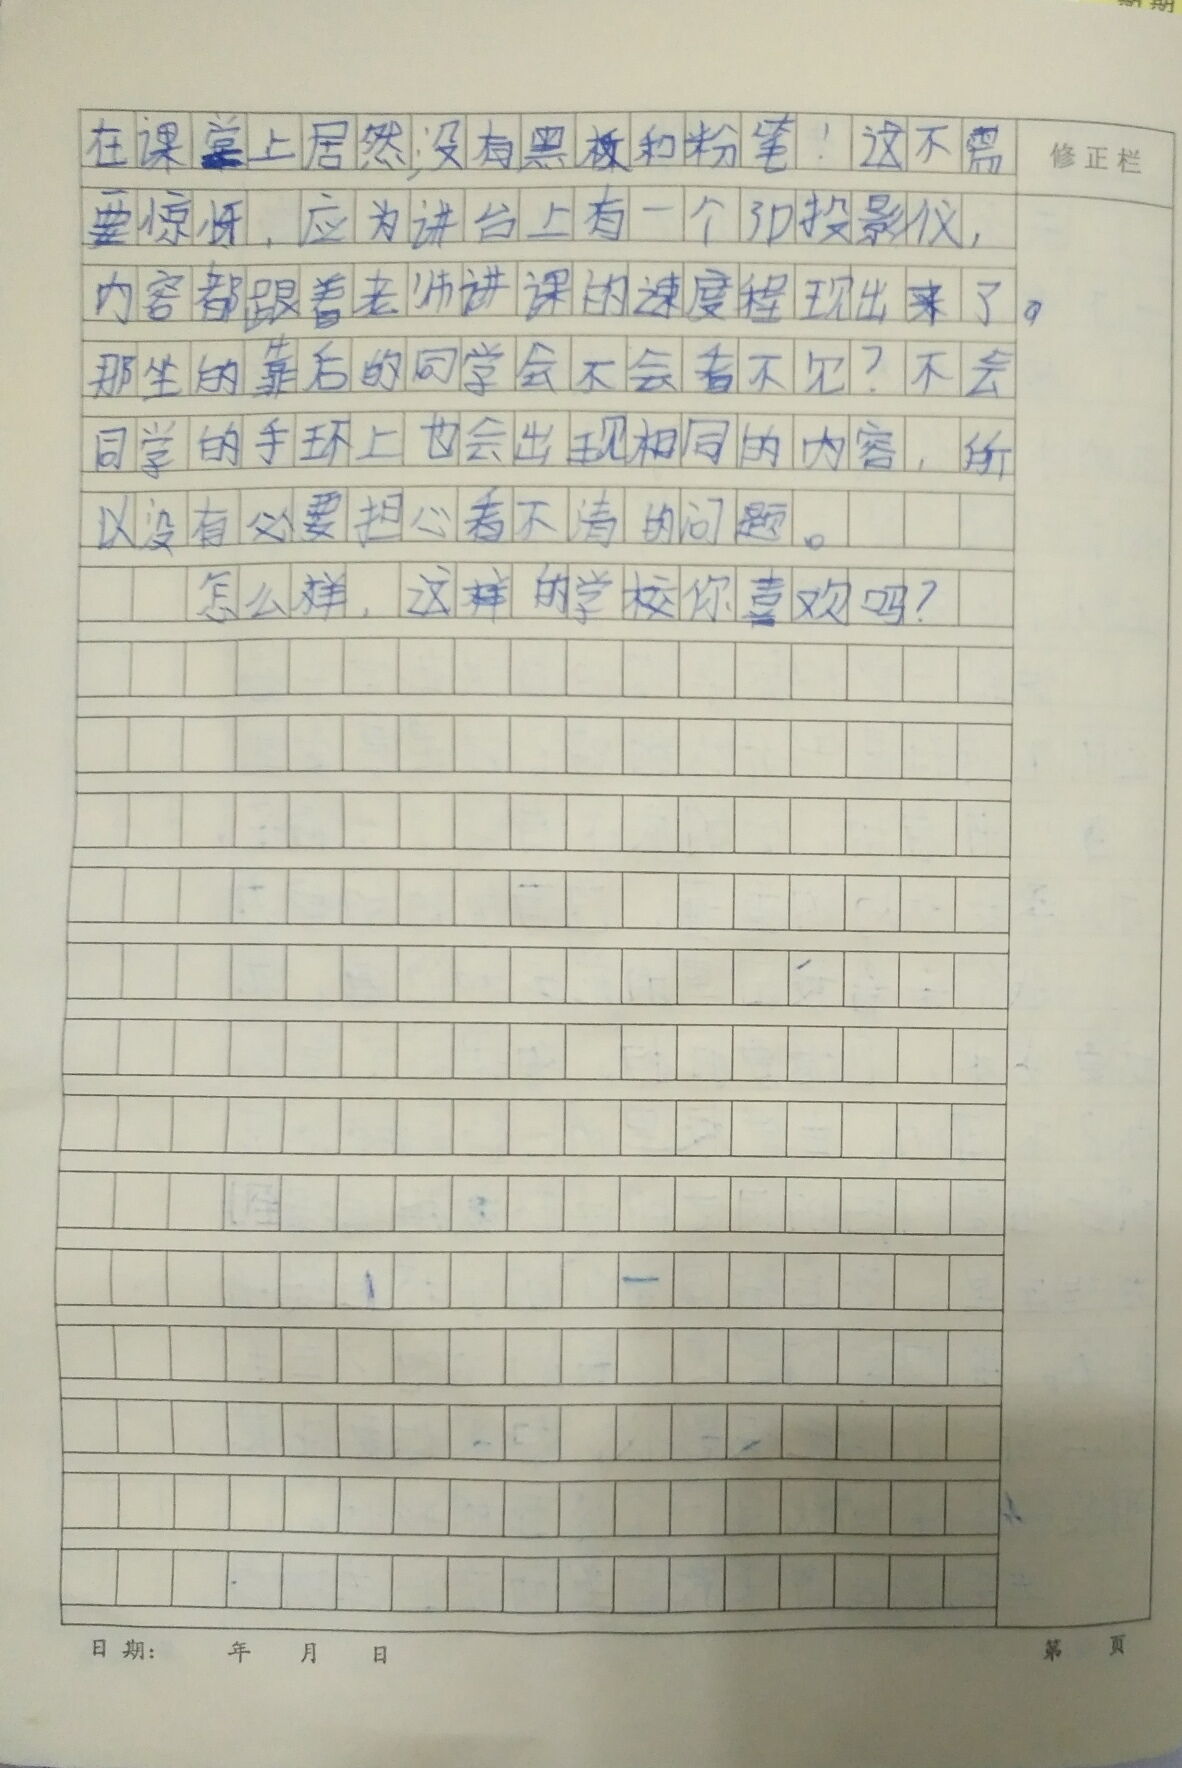 期期
在课堂上居然没有黑板和粉笔！这不需
修正栏
要惊讶，应为讲台上有一个3D投影仪，
内容都跟着老师讲课的速度程现出来了。
那坐的靠后的同学会不会看不见？不会
同学的手环上也会出现相同的内容，所
以没有必要担心看不清的问题。
怎么样，这样的学校你喜欢吗？
日期： 年 月 日
第 页